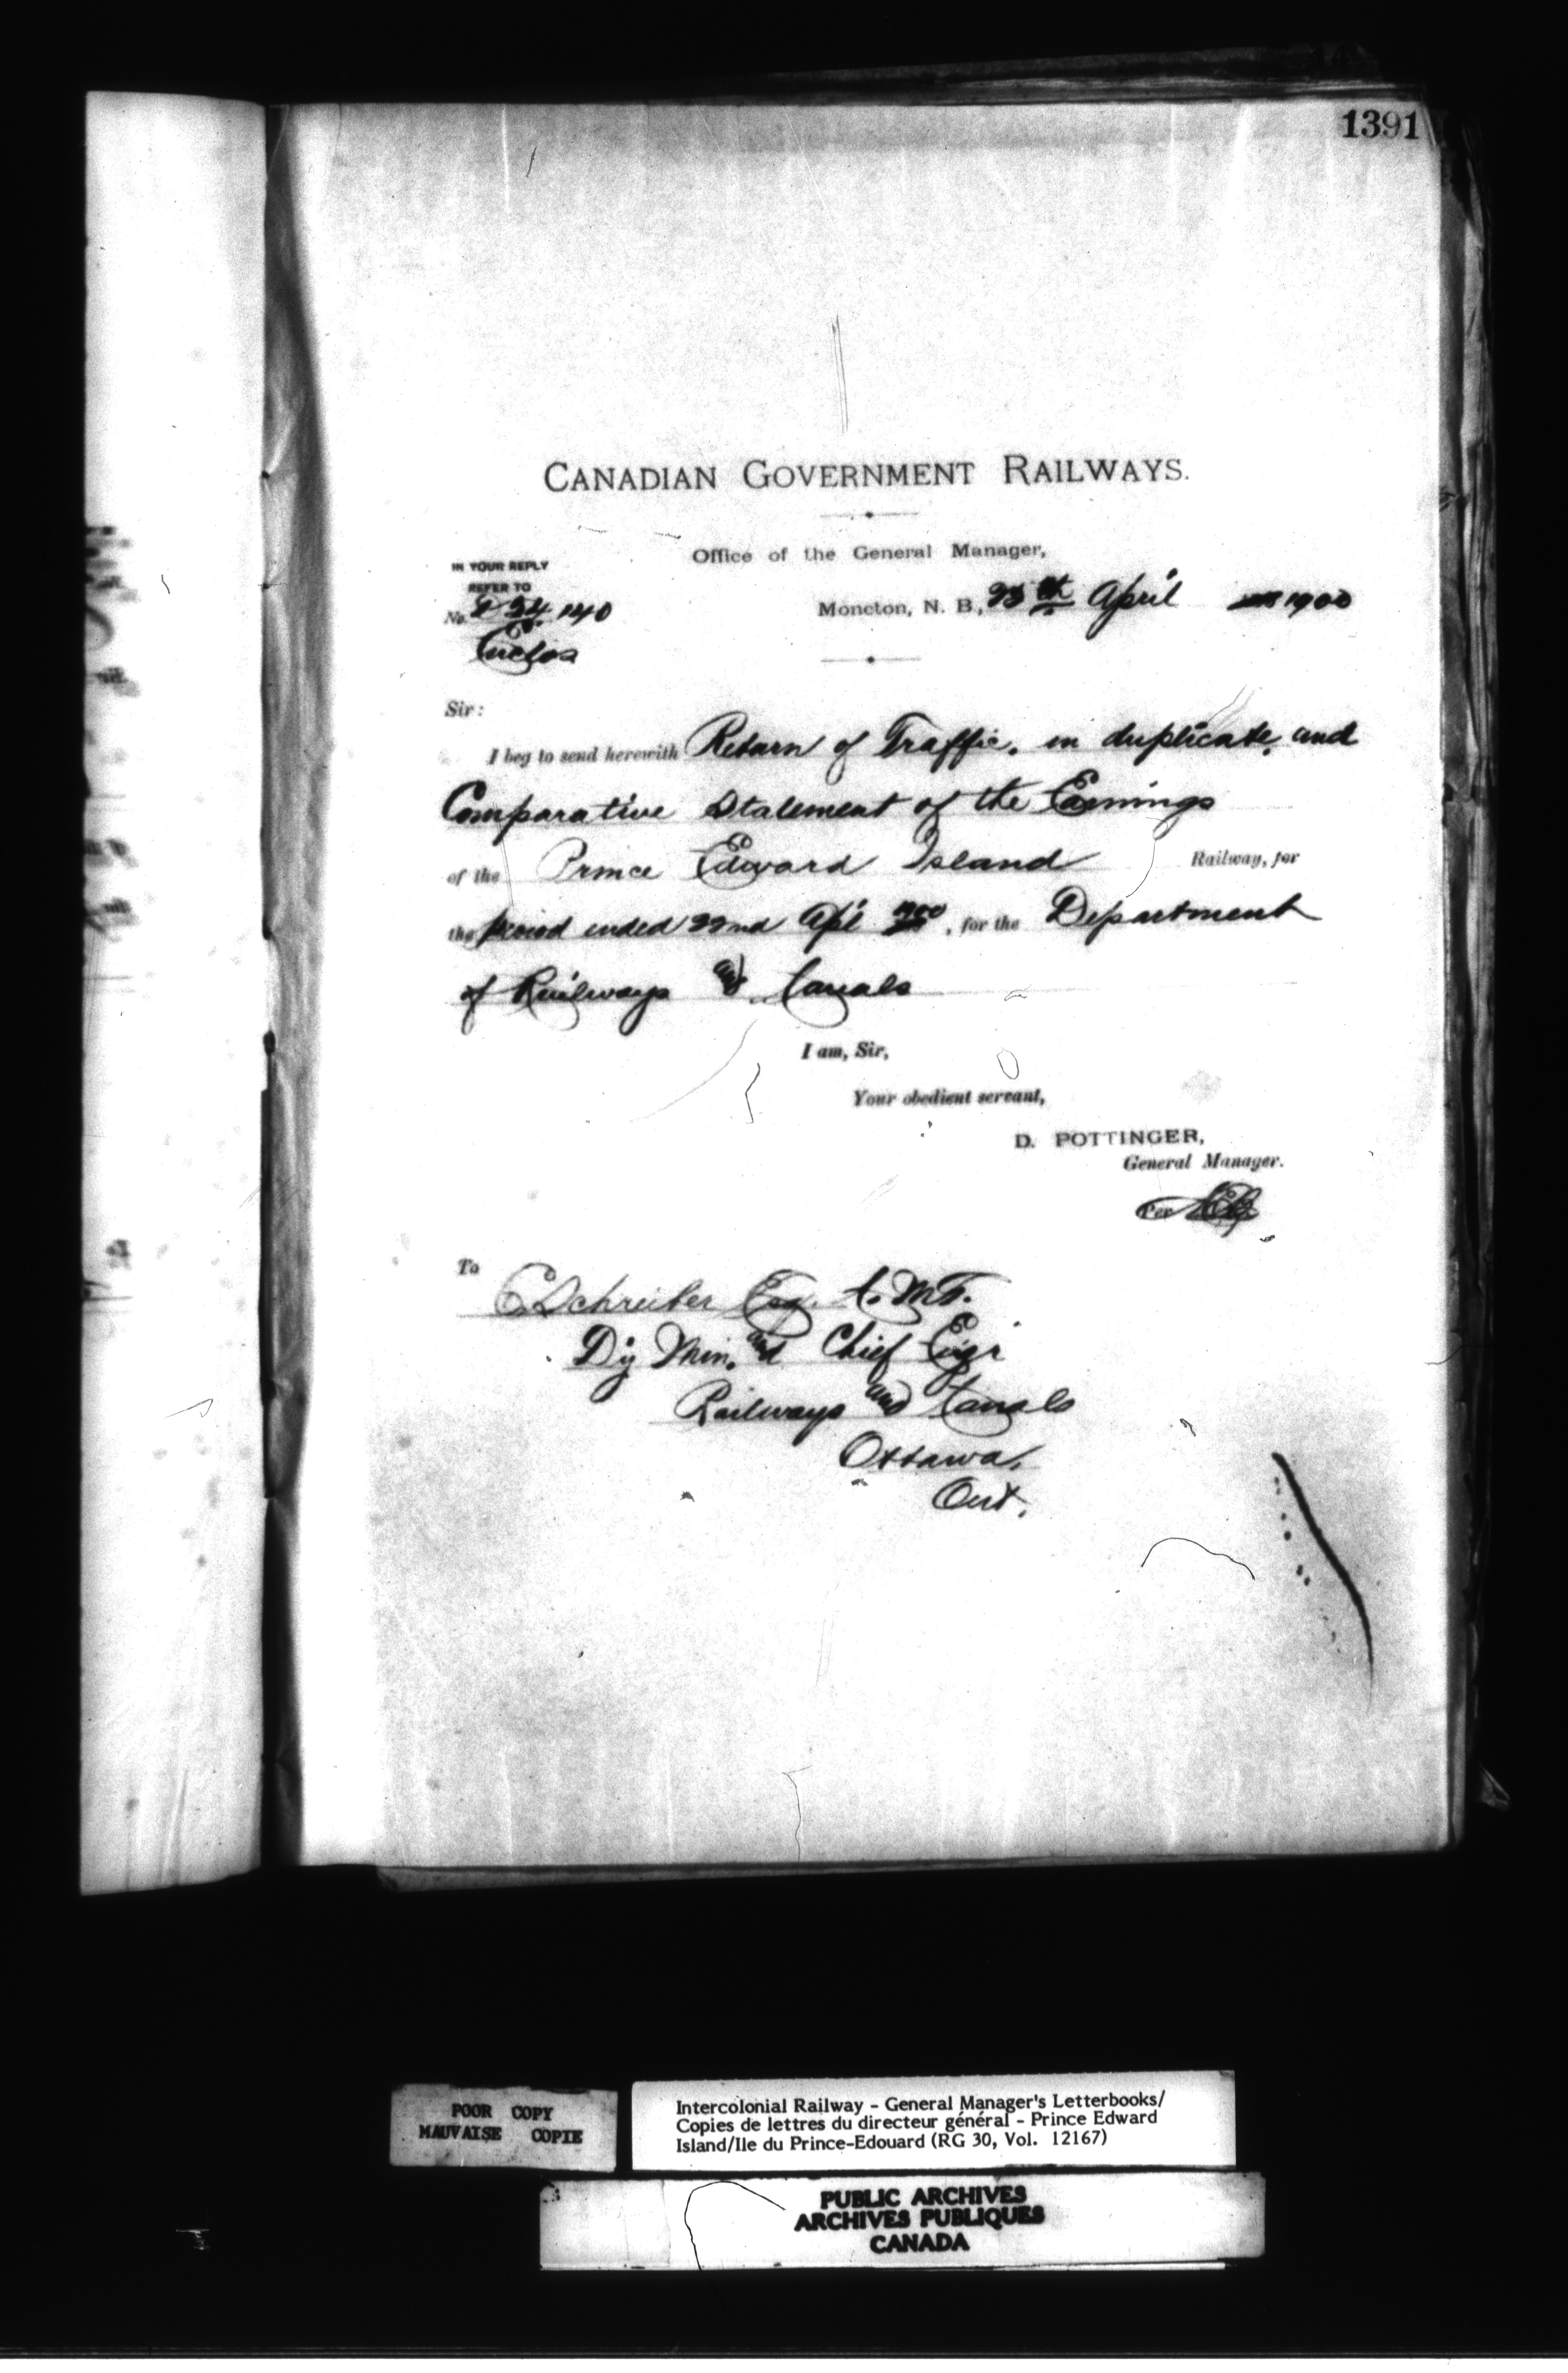 1391
CANADIAN GOVERNMENT RAILWAYS.
Office of the General Manager,
IN YOUR REPLY
REFER TO
No. 140
Moncton, N. B., April 1900
Enclos
Sir:
I beg to send herewith Return of Traffic, in duplicate, and
Comparative Statement of the Earnings
of the Prince Edward Island Railway, for
the period ended 22nd Apl 1900, for the Department
of Railways and Canals
I am, Sir,
Your obedient servant,
D. POTTINGER,
General Manager.
Per
To
C Schreiber Esq. C.M.G.
Dy Min. and Chief Engr
Railways and Canals
Ottawa,
Ont.
POOR COPY
MAUVAISE COPIE
Intercolonial Railway - General Manager's Letterbooks/
Copies de lettres du directeur général - Prince Edward
Island/Ile du Prince-Edouard (RG 30, Vol. 12167)
PUBLIC ARCHIVES
ARCHIVES PUBLIQUES
CANADA